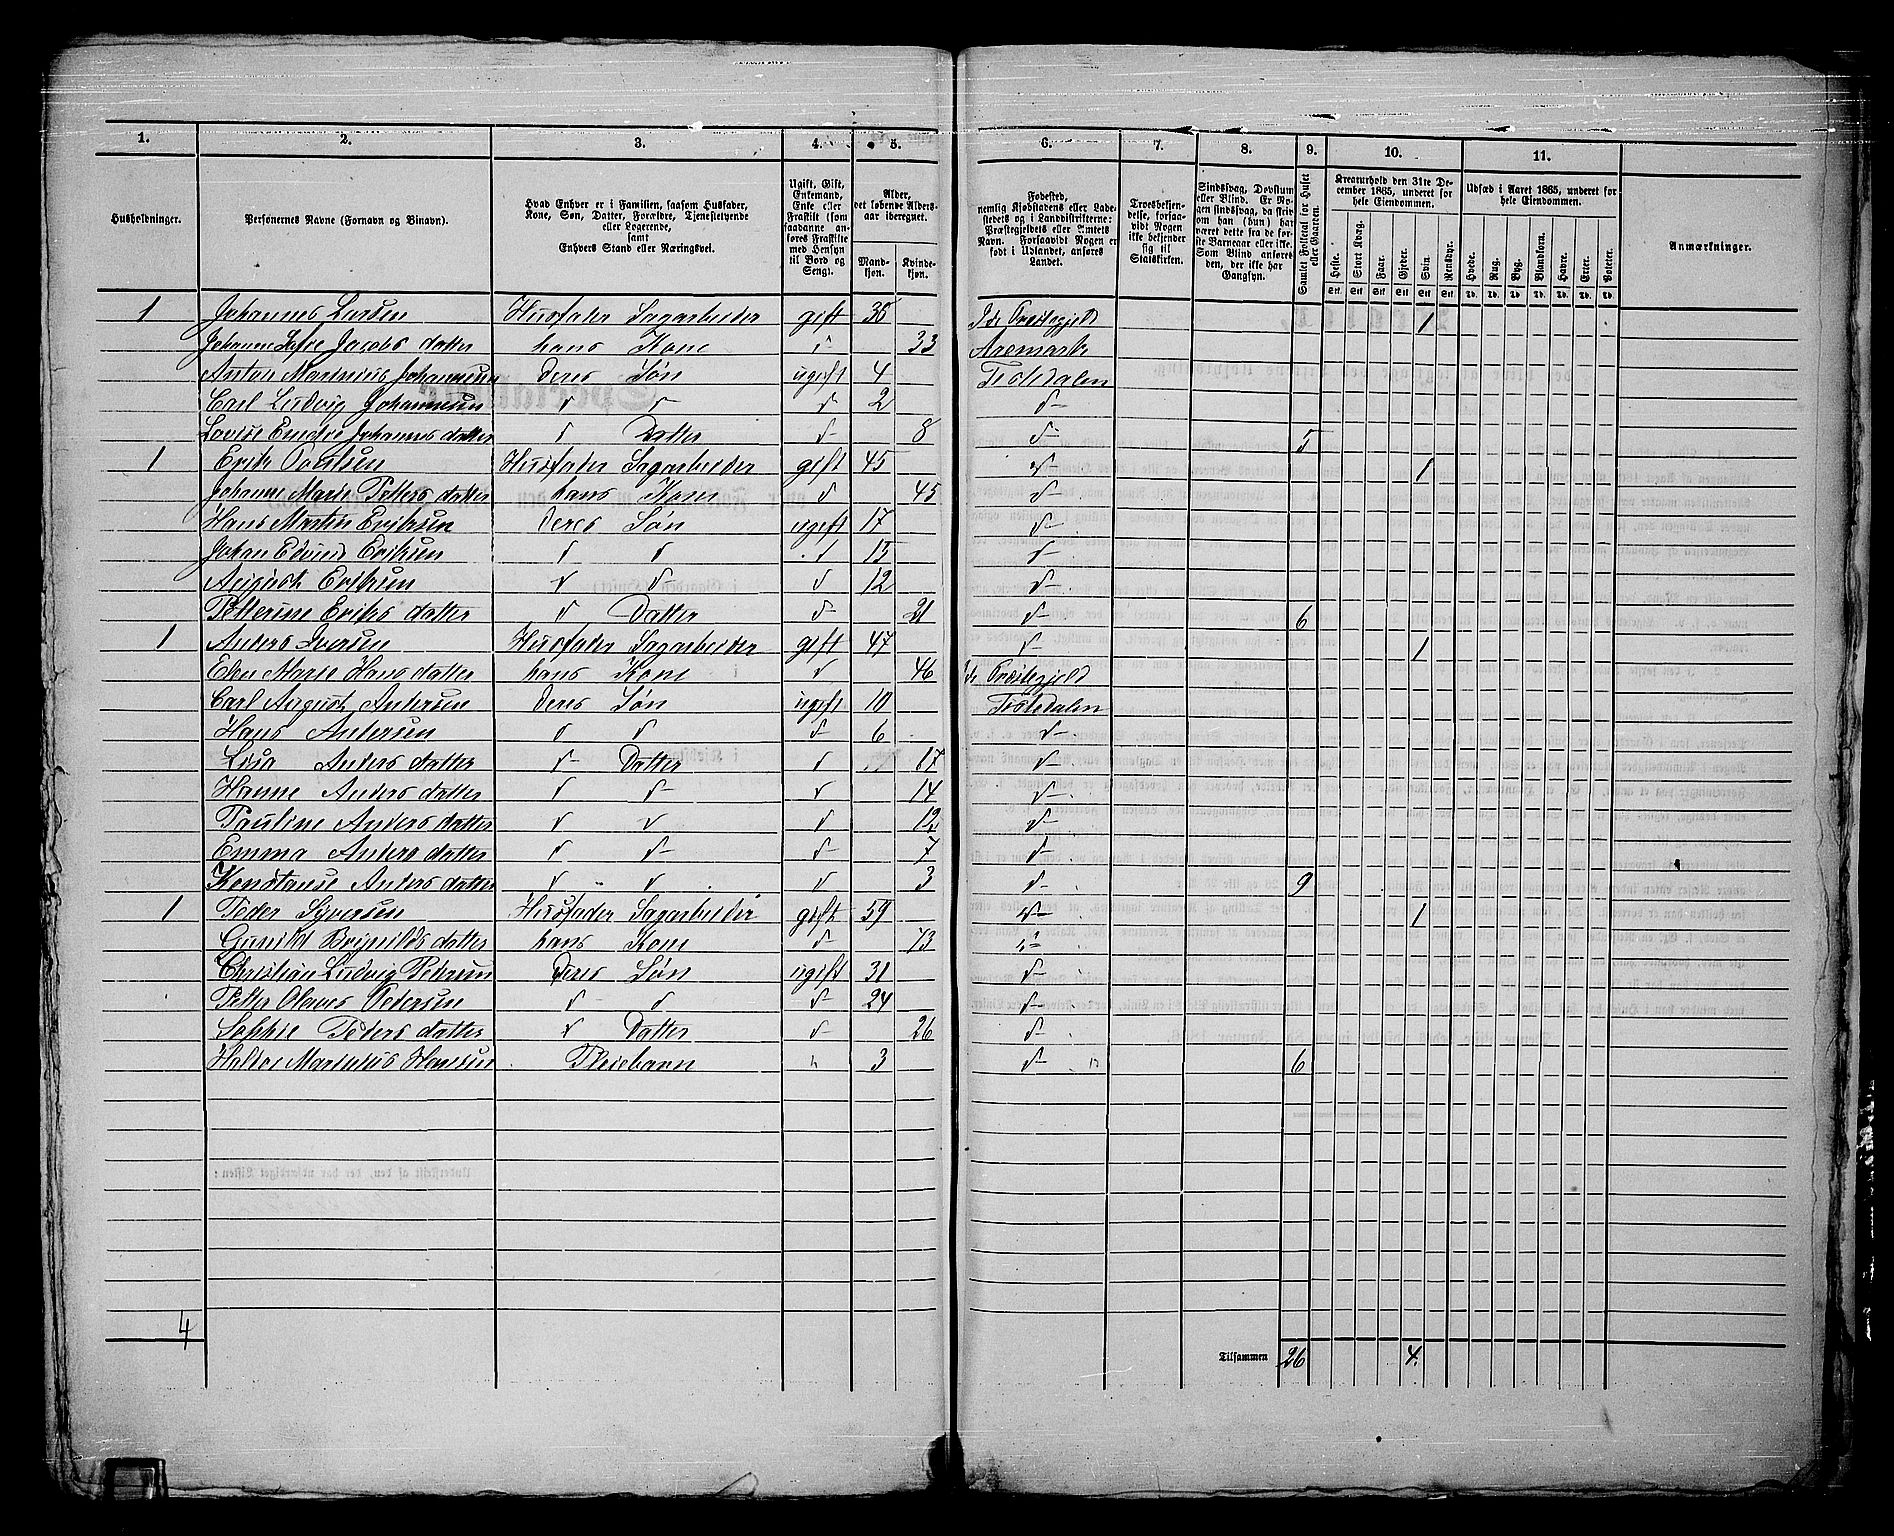 1. 2. 3. 4. 5. 6. 7. 8. 9. 10. 11.
Husholdninger. Personernes Navne (Fornavn og Binavn). Hvad Enhver er i Familien, saasom Husfader, Kone, Søn, Datter, Forældre, Tjenestetyende eller Logerende, samt Enhvers Stand eller Næringsvei. Ugift, Gift, Enkemand, Enke eller Fraskilt (som saadanne anføres Fraskilte med Hensyn til Bord og Seng). Alder, det løbende Aldersaar iberegnet. Mandkjøn. Kvindekjøn. Fødested, nemlig Kjøbstadens eller Ladestedets og i Landdistrikterne: Præstegjeldets eller Amtets Navn. Forsaavidt Nogen er født i Udlandet, anføres Landet. Troesbekjendelse, forsaavidt Nogen ikke bekjender sig til Statskirken. Sindssvag, Døvstum eller Blind. Er Nogen sindssvag, da skrives om han (hun) har været dette fra de første Barneaar eller ikke. Som Blind anføres den, der ikke har Gangsyn. Samlet Folketal for Huset eller Gaarden. Kreaturhold den 31te December 1865, underet for hele Eiendommen. Heste. Stort Kvæg. Faar. Gjeder. Svin. Rensdyr. Udsæd i Aaret 1865, underet for hele Eiendommen. Hvede. Rug. Byg. Blandkorn. Havre. Erter. Poteter. Anmærkninger.
Stk. Stk. Stk. Stk. Stk. Stk. Td. Td. Td. Td. Td. Td. Td.
1 Johannes Larsen Husfader Sagarbeider gift 35 Ide Præstegjeld 1
Johanne Jacobs datter hans Kone d 33 Aremark
Anton Marinius Johannesen deres Søn ugift 4 Tistedalen
Carl Ludvig Johannesen d d d 2 d
Lovise Johannes datter d Datter d 8 d 5
1 Erik Paulsen Husfader Sagarbeider gift 45 d 1
Johanne Marie Petters datter hans Kone d 45 d
Hans Martin Eriksen deres Søn ugift 17 d
Johan Edvind Eriksen d d d 15 d
August Eriksen d d d 12 d
Petterine Eriks datter d Datter d 21 d 6
1 Anders Iversen Husfader Sagarbeider gift 47 d 1
Elen Marie Hans datter hans Kone d 46 Ide Præstegjeld
Carl August Andersen deres Søn ugift 10 Tistedalen
Hans Andersen d d d 6 d
Lisa Anders datter d Datter d 17 d
Hanne Anders datter d d d 14 d
Pauline Anders datter d d d 12 d
Emma Anders datter d d d 7 d
Konstanse Anders datter d d d 3 d 9
1 Peder Syversen Husfader Sagarbeider gift 59 d 1
Gunild Brynilds datter hans Kone d 73 d
Christian Ludvig Pedersen deres Søn ugift 31 d
Petter Olaves Pedersen d d d 24 d
Sophie Peders datter d Datter d 26 d
Martinius Hansen Pleiebarn 3 d 6
4 Tilsammen 26 4.